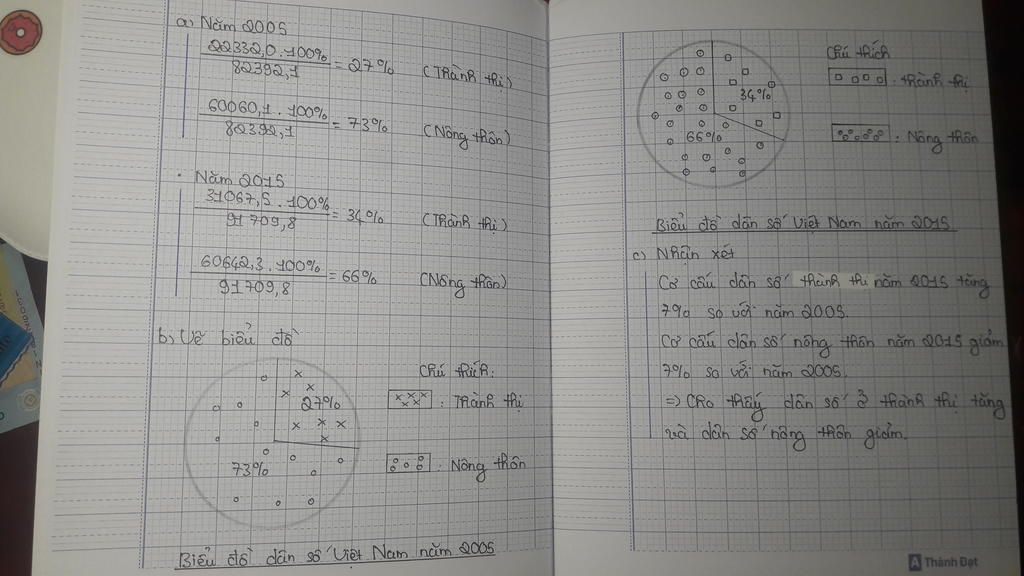 a) Năm 2005
22332,0 . 100%
82392,1
= 27% (Thành thị)
60060,1 . 100%
82392,1
= 73% (Nông thôn)
. Năm 2015
31067,5 . 100%
91709,8
= 34% (Thành thị)
60642,3 . 100%
91709,8
= 66% (Nông thôn)
b) Vẽ biểu đồ
Chú thích:
27%
: Thành thị
73%
: Nông thôn
Biểu đồ dân số Việt Nam năm 2005
Chú thích
: thành thị
34%
66%
: Nông thôn
Biểu đồ dân số Việt Nam năm 2015
c) Nhận xét
Cơ cấu dân số thành thị năm 2015 tăng
7% so với năm 2005.
Cơ cấu dân số nông thôn năm 2015 giảm
7% so với năm 2005.
=> Cho thấy dân số ở thành thị tăng
và dân số nông thôn giảm.
A Thành Đạt